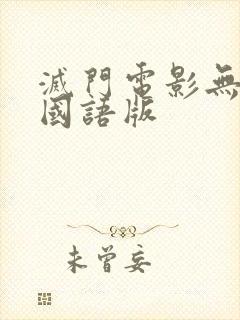 滅門電影無
國語版
未曾妄